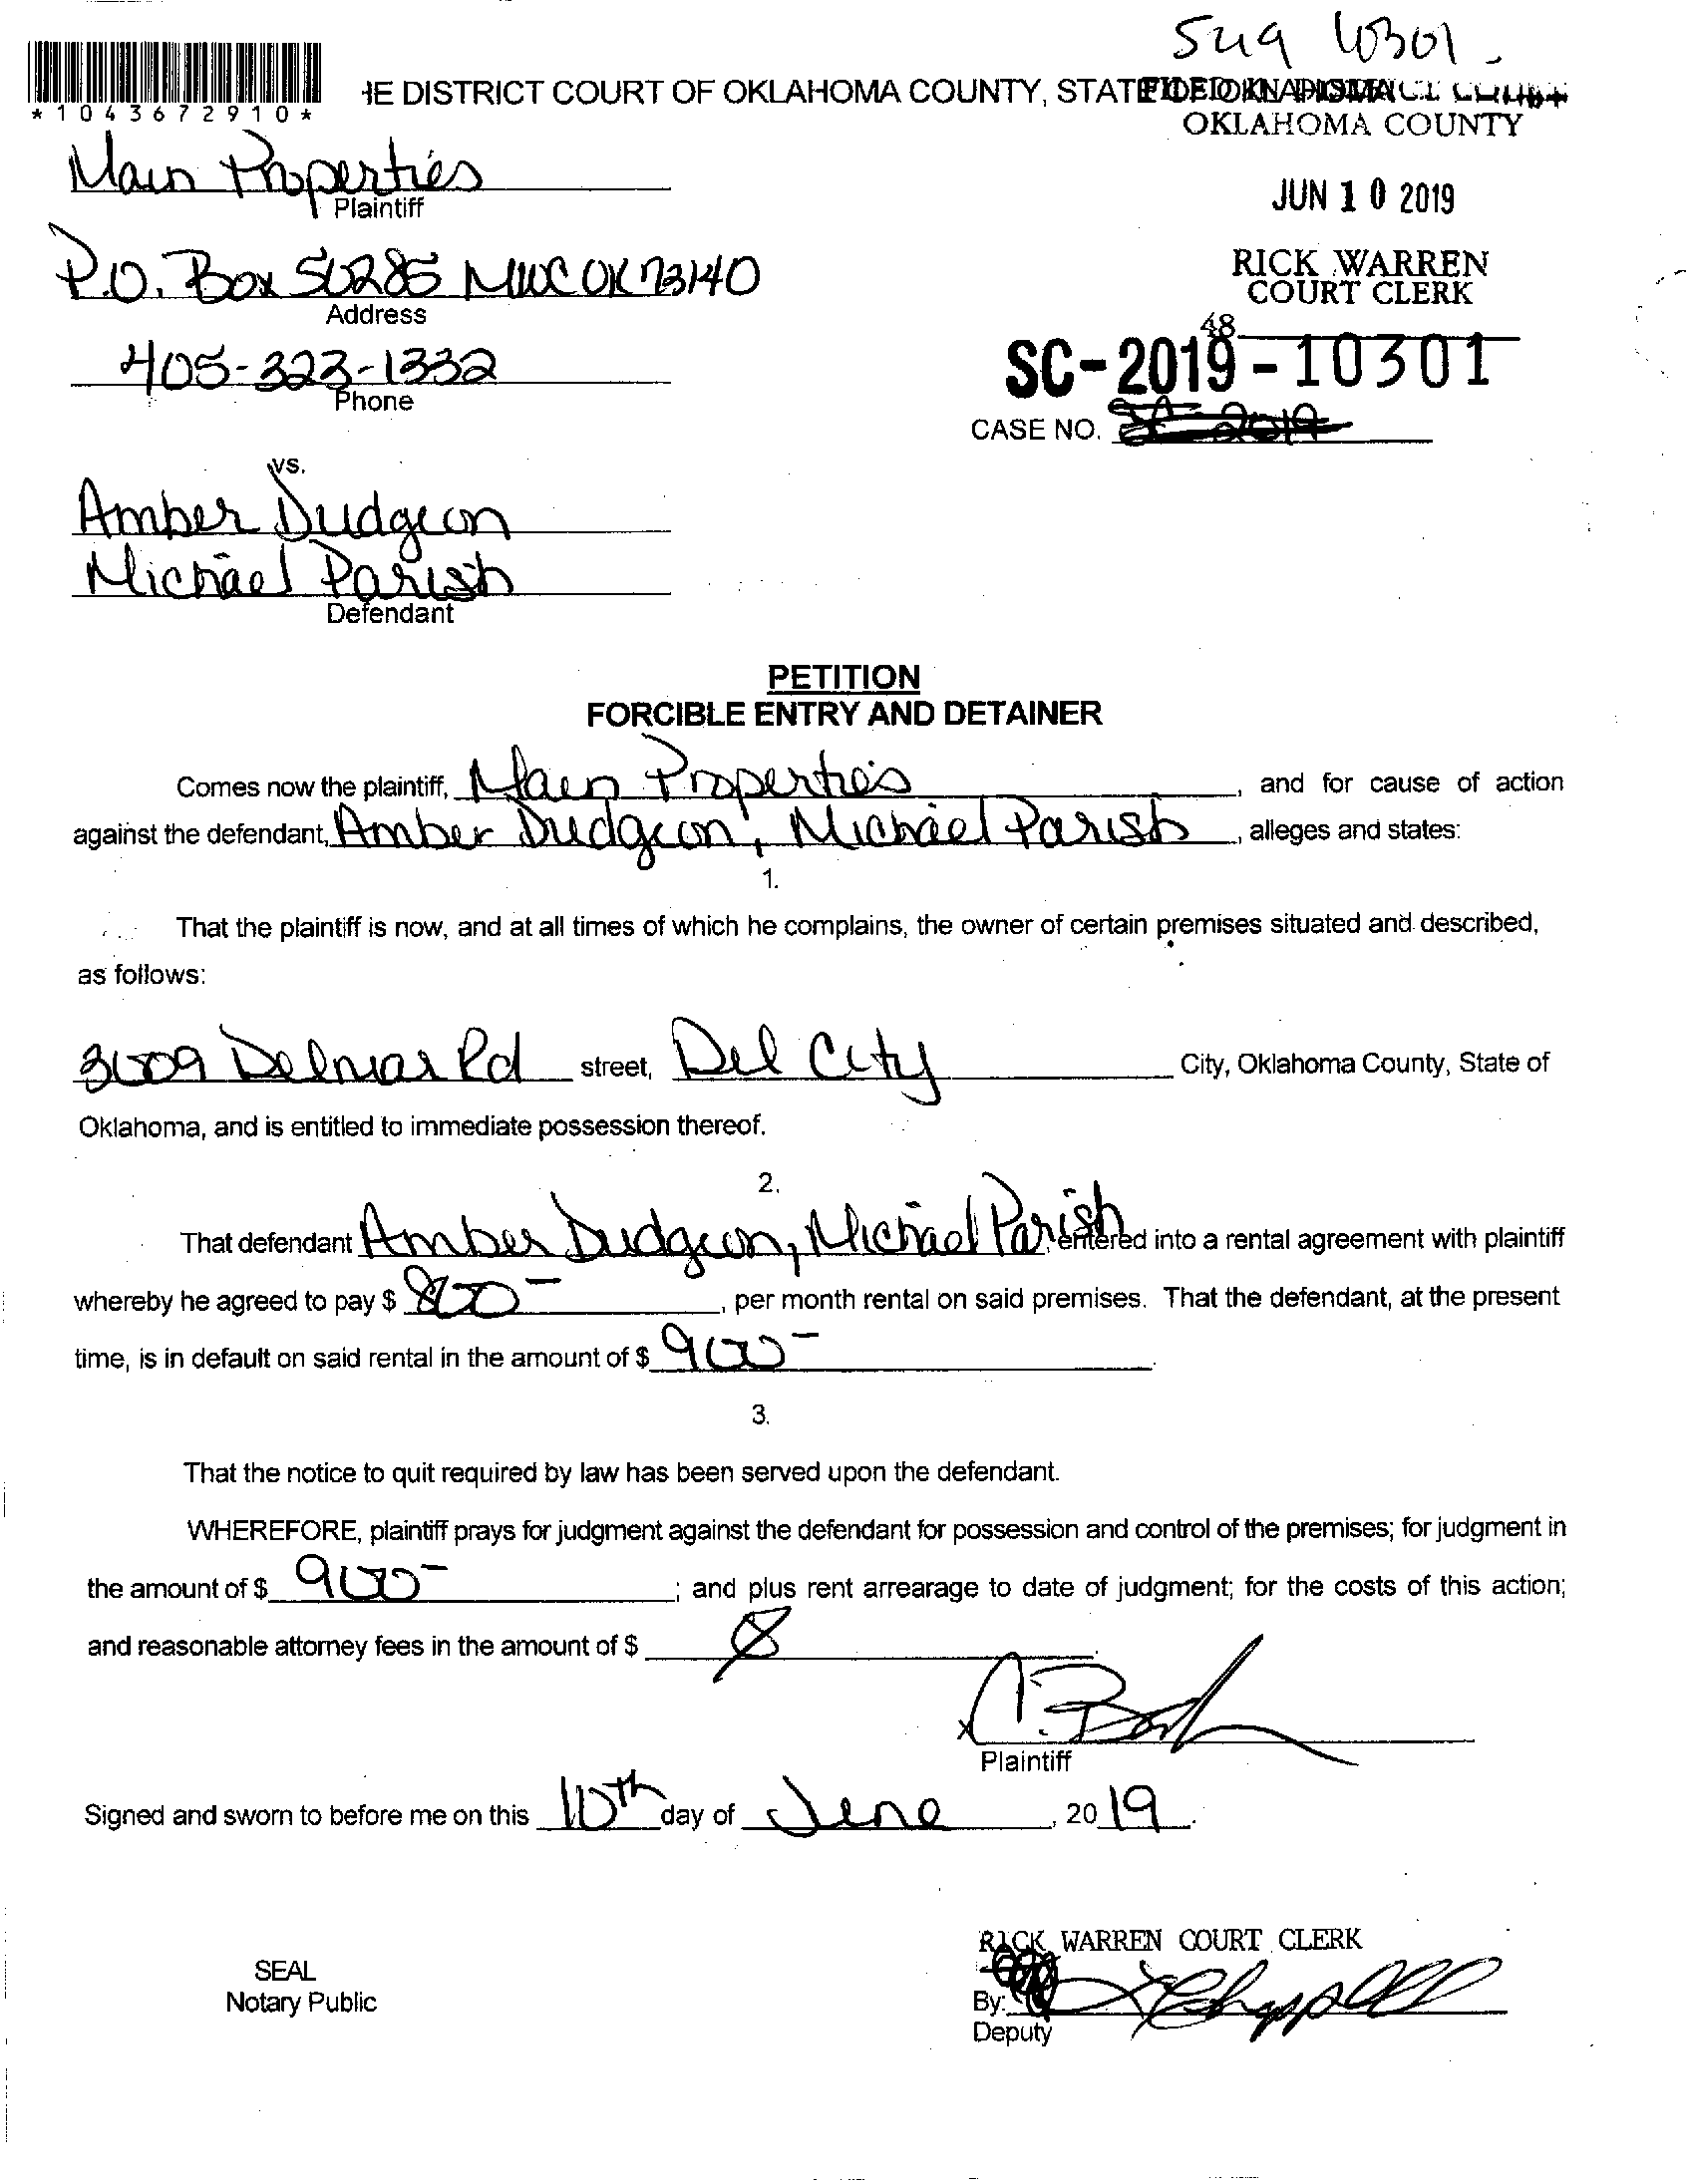 *1043672910*
HE DISTRICT COURT OF OKLAHOMA COUNTY, STATE
FILED IN DISTRICT COURT
OKLAHOMA COUNTY
Main Properties
Plaintiff
JUN 10 2019
P.O. Box 50285 MWC OK 73140
Address
RICK WARREN
COURT CLERK
48
405-323-1332
Phone
SC-2019-10301
CASE NO.
vs.
Amber Dudgeon
Michael Parish
Defendant
PETITION
FORCIBLE ENTRY AND DETAINER
Comes now the plaintiff, Main Properties, and for cause of action
against the defendant, Amber Dudgeon, Michael Parish, alleges and states:
1.
That the plaintiff is now, and at all times of which he complains, the owner of certain premises situated and described,
as follows:
3609 Delmar Rd street, Del City City, Oklahoma County, State of
Oklahoma, and is entitled to immediate possession thereof.
2.
That defendant Amber Dudgeon, Michael Parish, entered into a rental agreement with plaintiff
whereby he agreed to pay $ 800-, per month rental on said premises. That the defendant, at the present
time, is in default on said rental in the amount of $ 900-.
3.
That the notice to quit required by law has been served upon the defendant.
WHEREFORE, plaintiff prays for judgment against the defendant for possession and control of the premises; for judgment in
the amount of $ 900-; and plus rent arrearage to date of judgment; for the costs of this action;
and reasonable attorney fees in the amount of $
x
Plaintiff
Signed and sworn to before me on this 10th day of June, 2019.
RICK WARREN COURT CLERK
SEAL
Notary Public
By:
Deputy